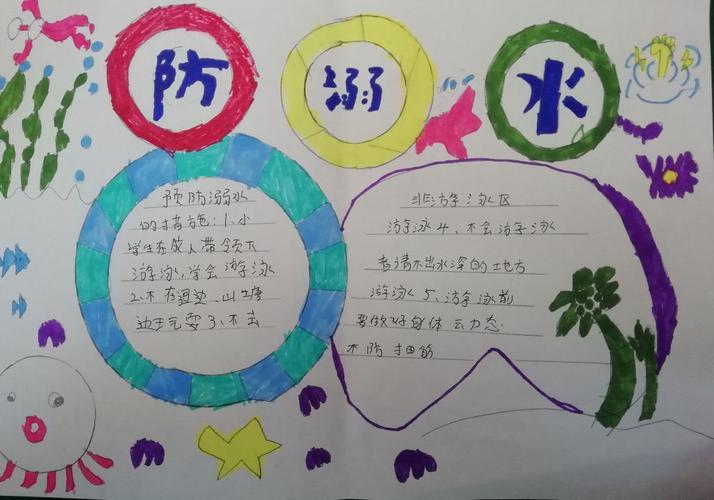 防溺水
预防溺水
的措施：1、小
学生在成人带领木
游泳，学会游泳
2、不在河边、山塘
边玩耍 3、不去
非游泳区
游泳 4、不会游泳
者请不出水深的地方
游泳 5、游泳前
要做好身体
木防抽筋